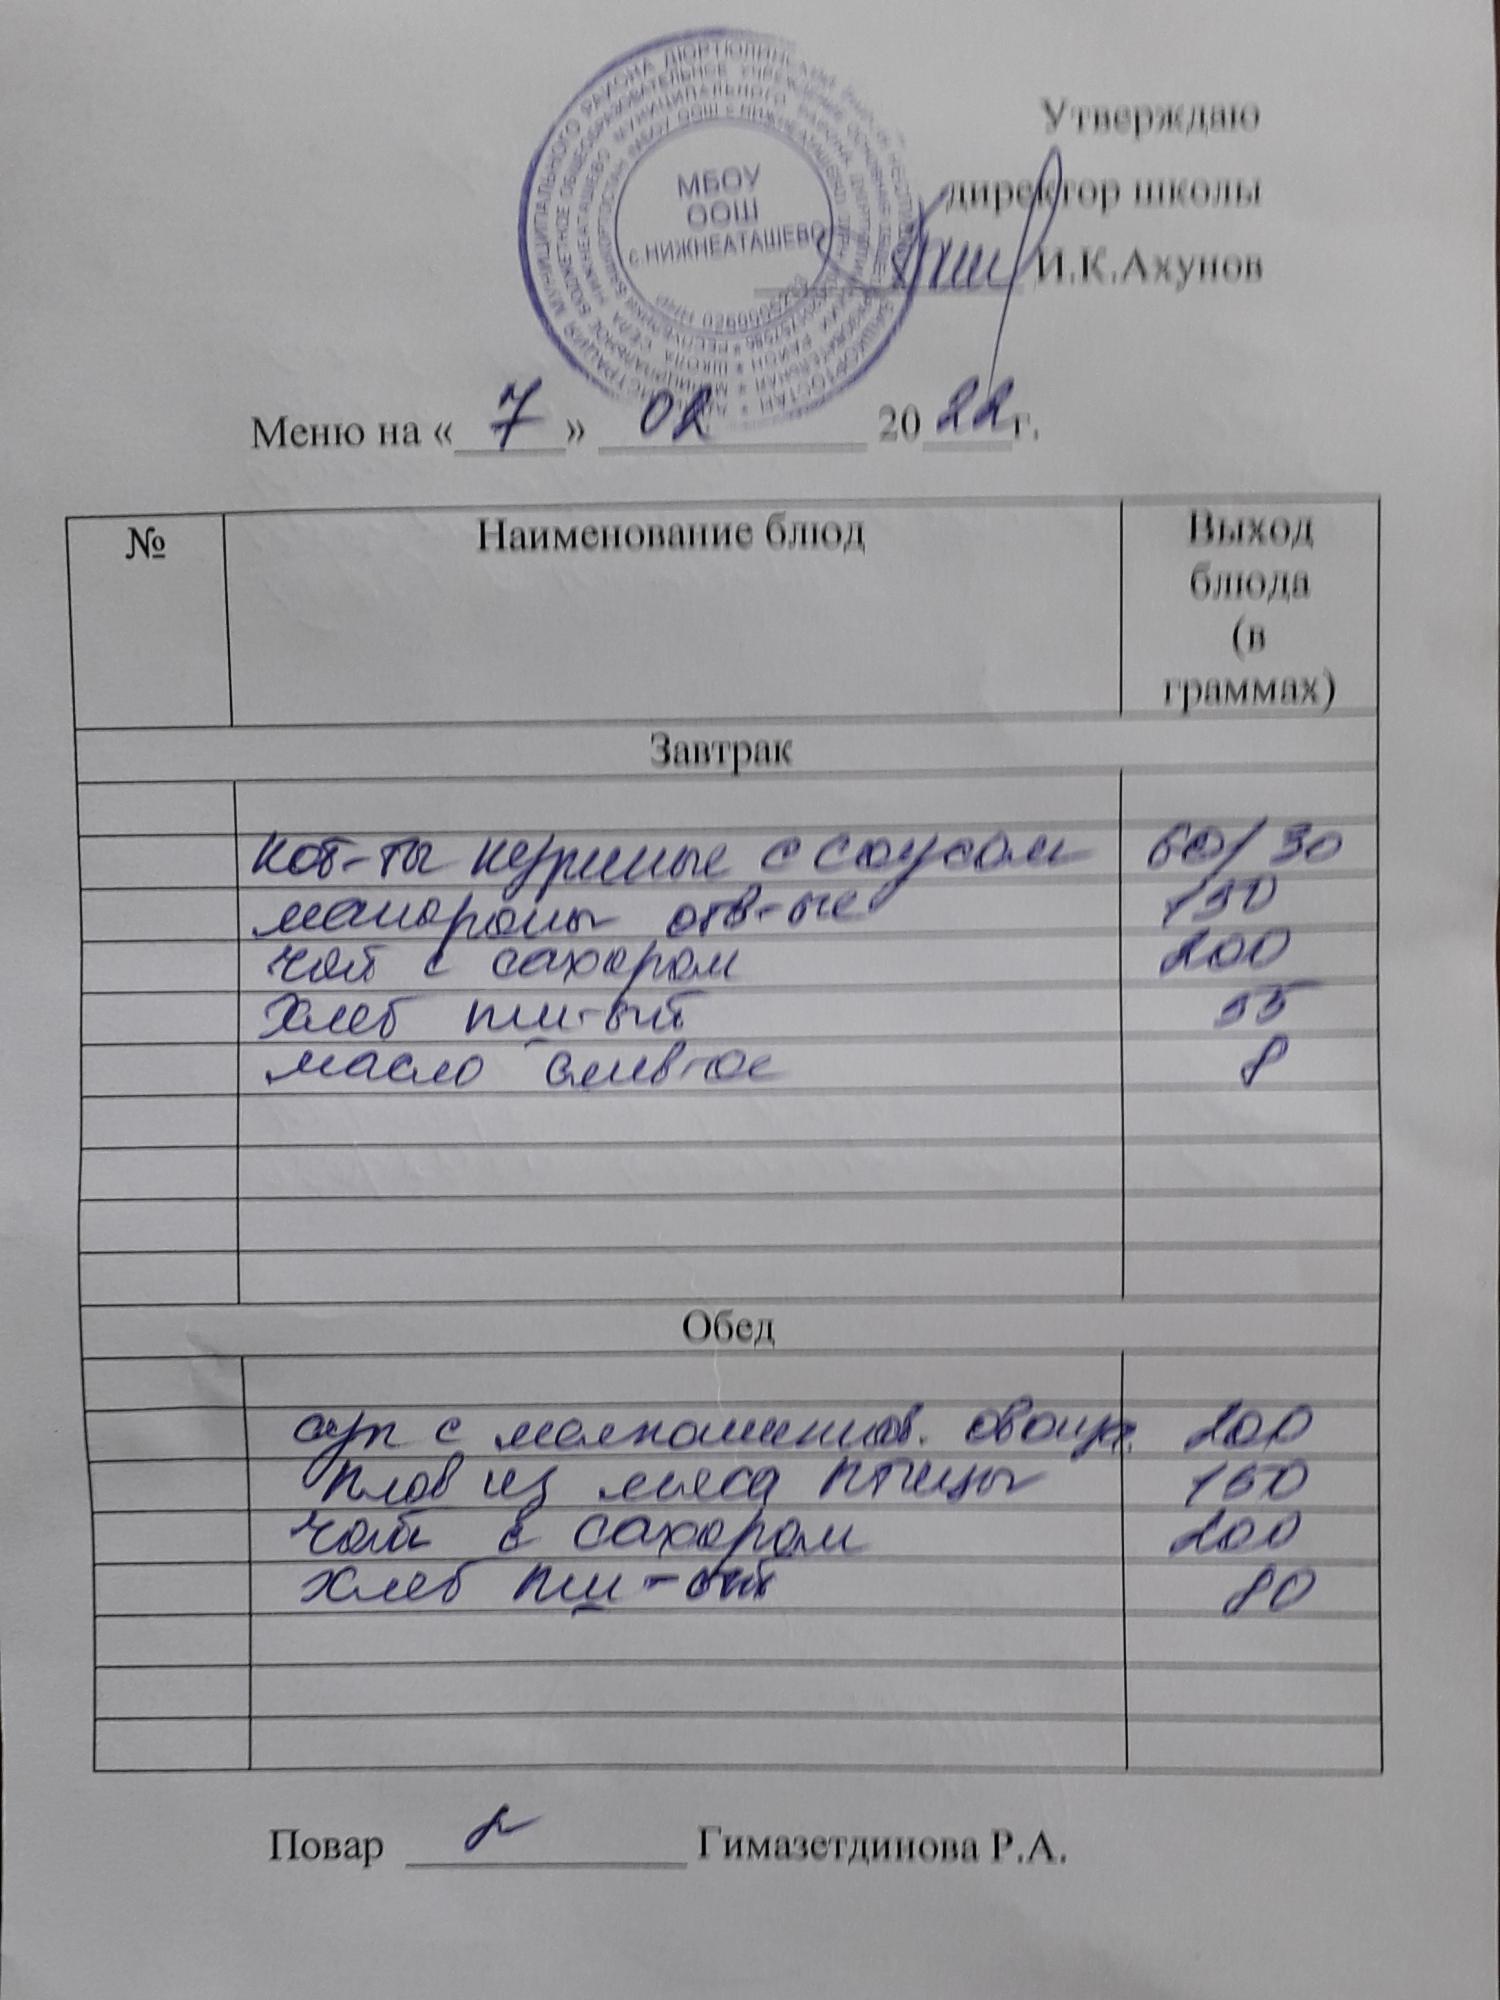 МБОУ
ООШ
с.НИЖНЕАТАШЕВО
Утверждаю
директор школы
И.К.Ахунов
Меню на «7» 02 2022г.
№ Наименование блюд Выход
блюда
(в
граммах)
Завтрак
кот-ты куриные с соусом 60/30
макароны отв-ые 150
чай с сахаром 200
Хлеб пш-ый 55
масло слив-ое 8
Обед
суп с мелкошинков. овощ. 200
Плов из мяса птицы 150
чай с сахаром 200
Хлеб пш-ый 80
Повар Гимазетдинова Р.А.